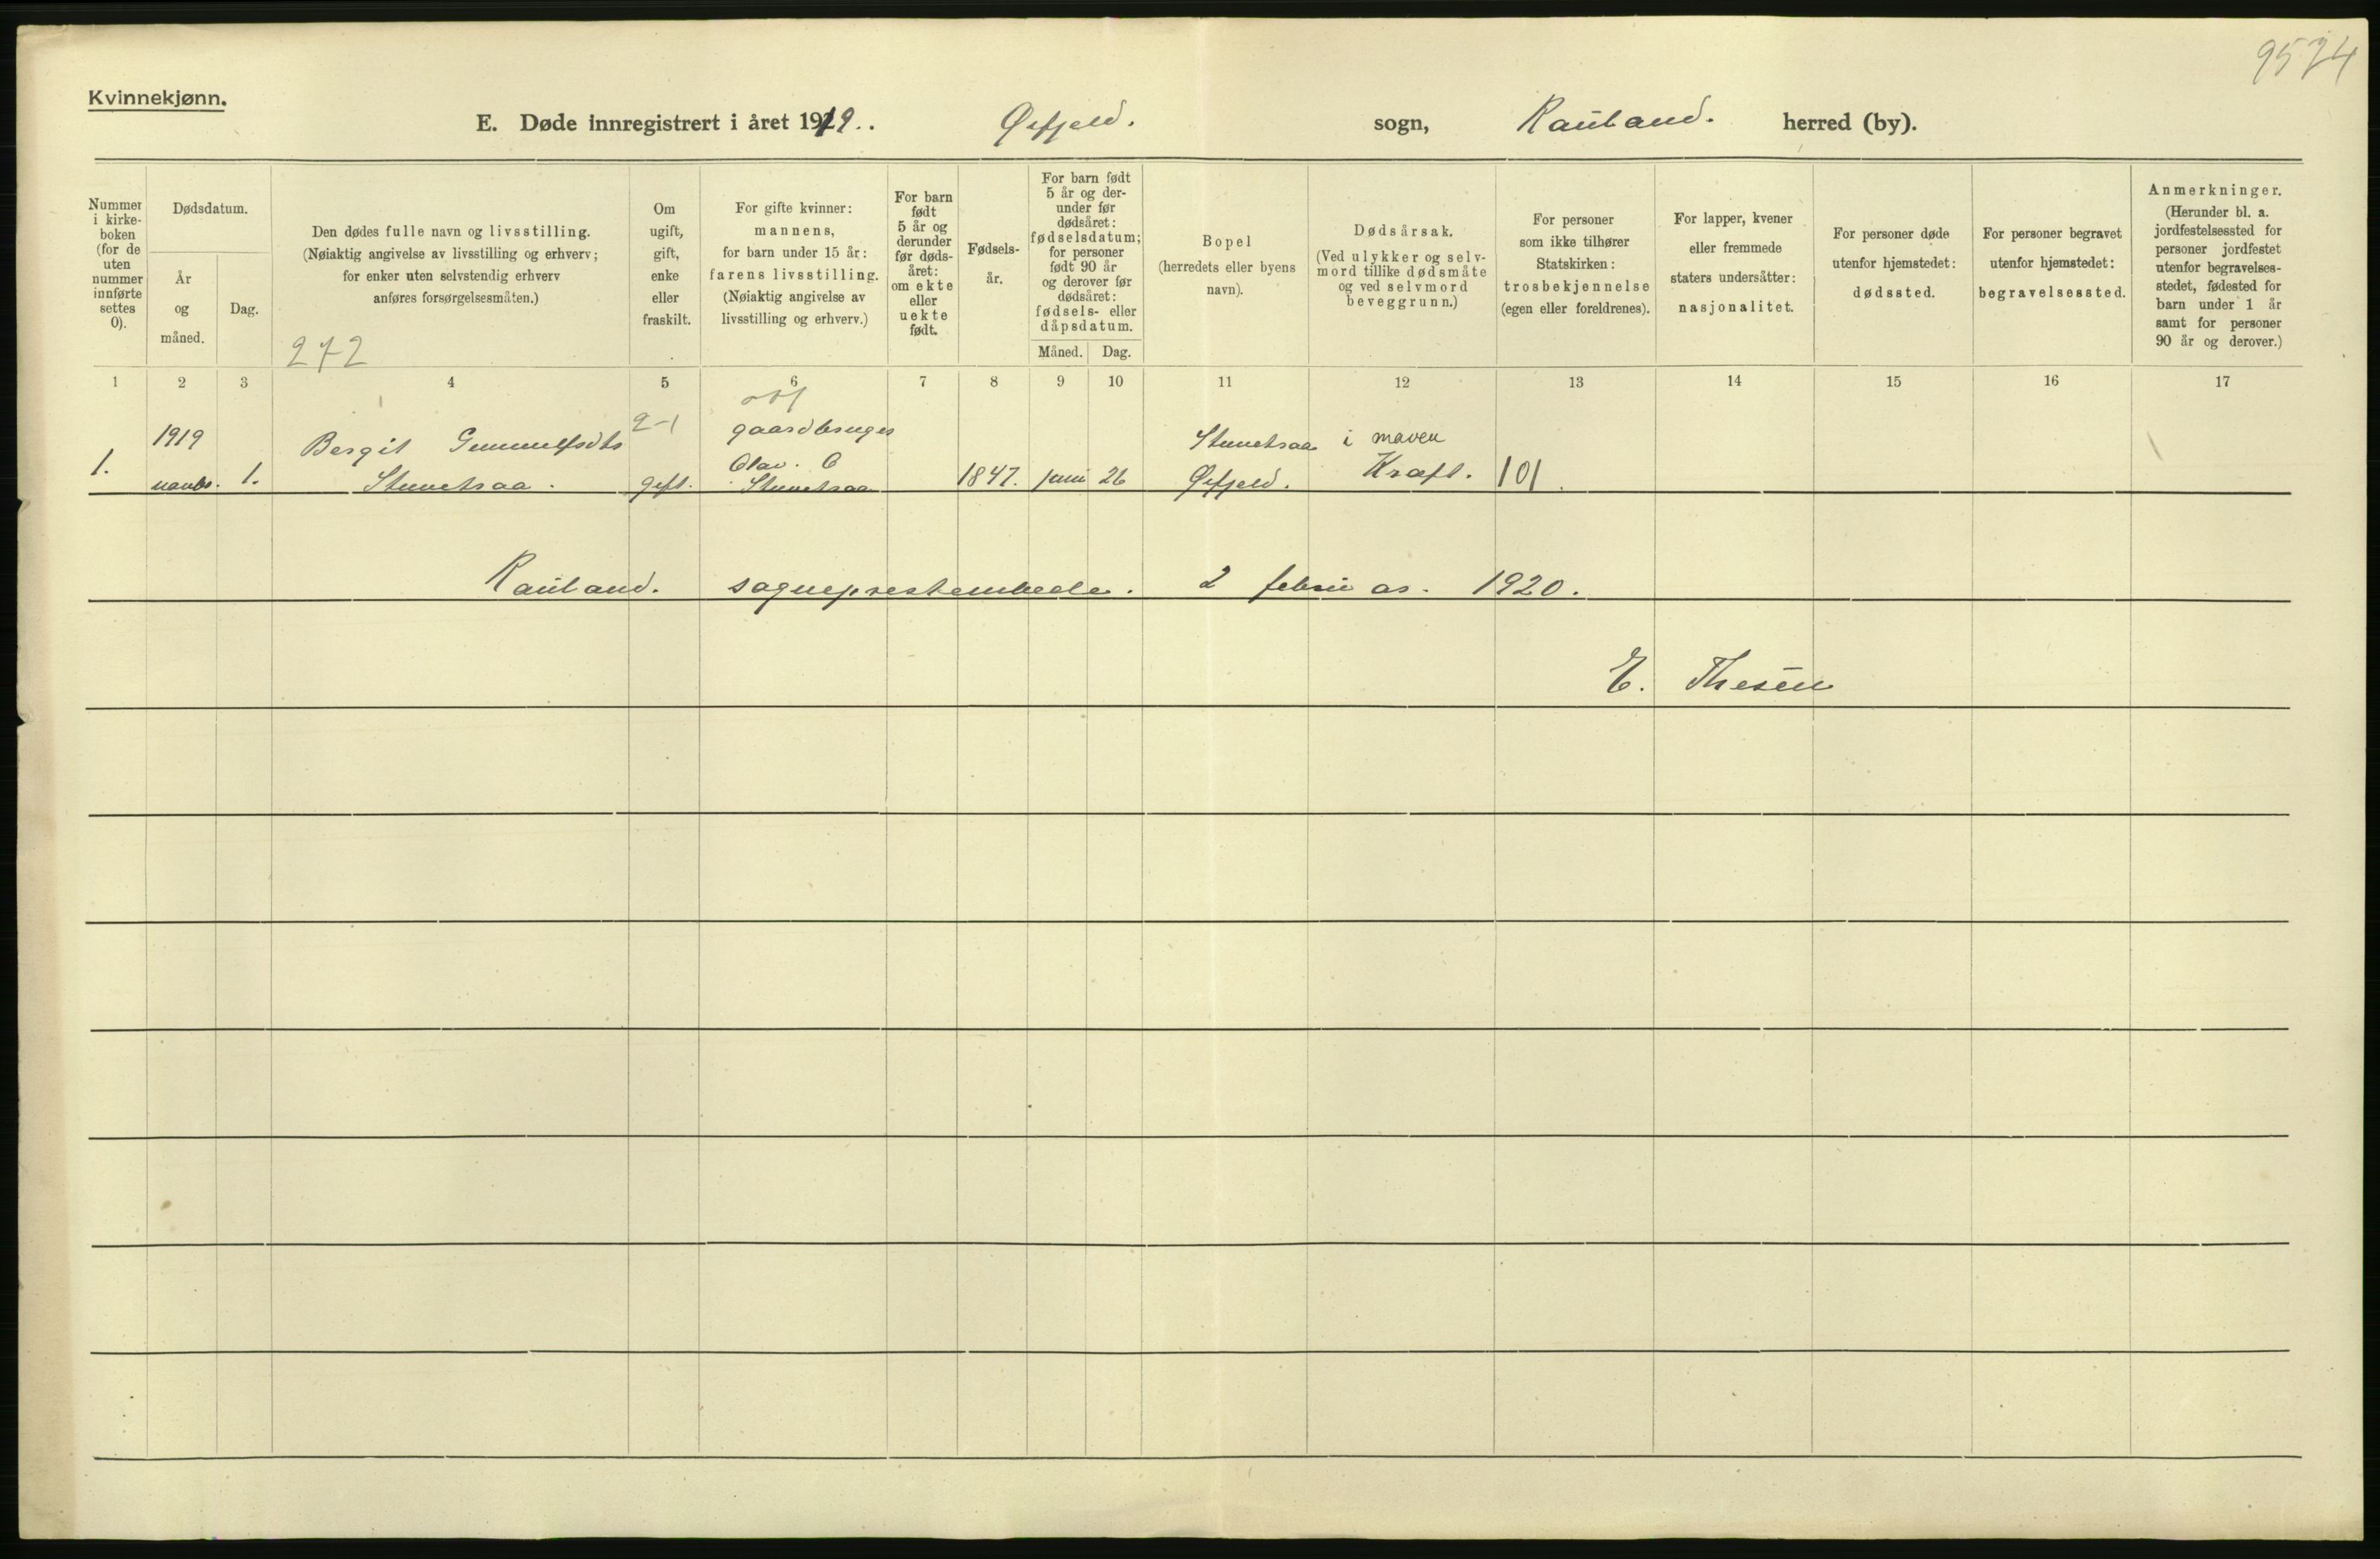 9574
Kvinnekjønn.
E. Døde innregistrert i året 1919. Øifjeld. sogn, Rauland. herred (by).
Nummer
i kirke-
boken
(for de
uten
nummer
innførte
settes
0).
Dødsdatum.
År
og
måned.
Dag.
Den dødes fulle navn og livsstilling.
(Nøiaktig angivelse av livsstilling og erhverv;
for enker uten selvstendig erhverv
anføres forsørgelsesmåten.)
272
Om
ugift,
gift,
enke
eller
fraskilt.
For gifte kvinner:
mannens,
for barn under 15 år:
farens livsstilling.
(Nøiaktig angivelse av
livsstilling og erhverv.)
For barn
født
5 år og
derunder
før døds-
året:
om ekte
eller
uekte
født.
Fødsels-
år.
For barn født
5 år og der-
under før
dødsåret:
fødselsdatum;
for personer
født 90 år
og derover før
dødsåret:
fødsels- eller
dåpsdatum.
Måned. Dag.
Bopel
(herredets eller byens
navn).
Dødsårsak.
(Ved ulykker og selv-
mord tillike dødsmåte
og ved selvmord
beveggrunn.)
For personer
som ikke tilhører
Statskirken:
trosbekjennelse
(egen eller foreldrenes).
For lapper, kvener
eller fremmede
staters undersåtter:
nasjonalitet.
For personer døde
utenfor hjemstedet:
dødssted.
For personer begravet
utenfor hjemstedet:
begravelsessted.
Anmerkninger.
(Herunder bl. a.
jordfestelsessted for
personer jordfestet
utenfor begravelses-
stedet, fødested for
barn under 1 år
samt for personer
90 år og derover.)
1 2 3 4 5 6 7 8 9 10 11 12 13 14 15 16 17
1.
1919
novbr.
1.
Bergit Gunnulfsdtr
2-1
gift.
gaardbruger
Olav. O
1847.
juni
26
Øifjeld.
i maven
Kræft.
101
Rauland. sogneprestembede. 2 februar. 1920.
E. Thesen